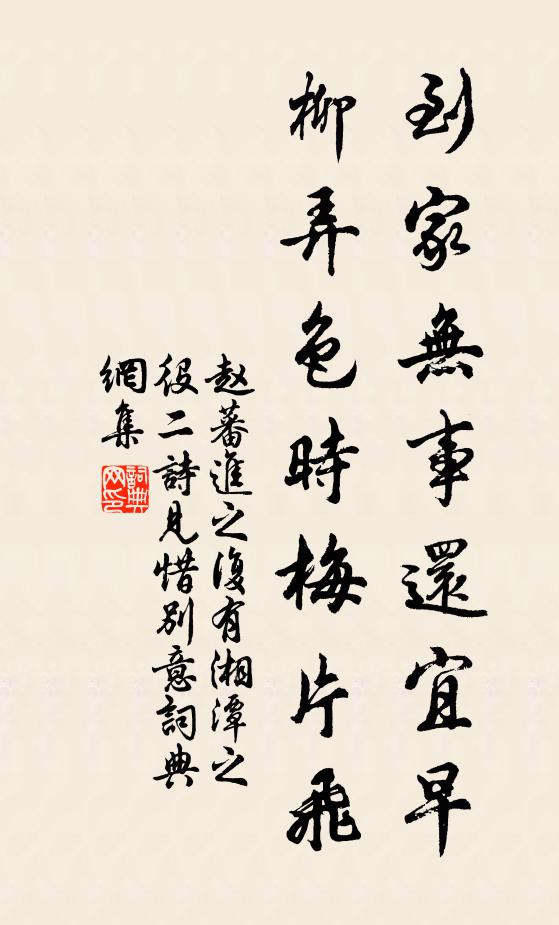 到家無事還宜早
柳弄色時梅片飛
赵蕃進之復有湘潭之
役二詩見惜别意詞典
網集
詞典
网印